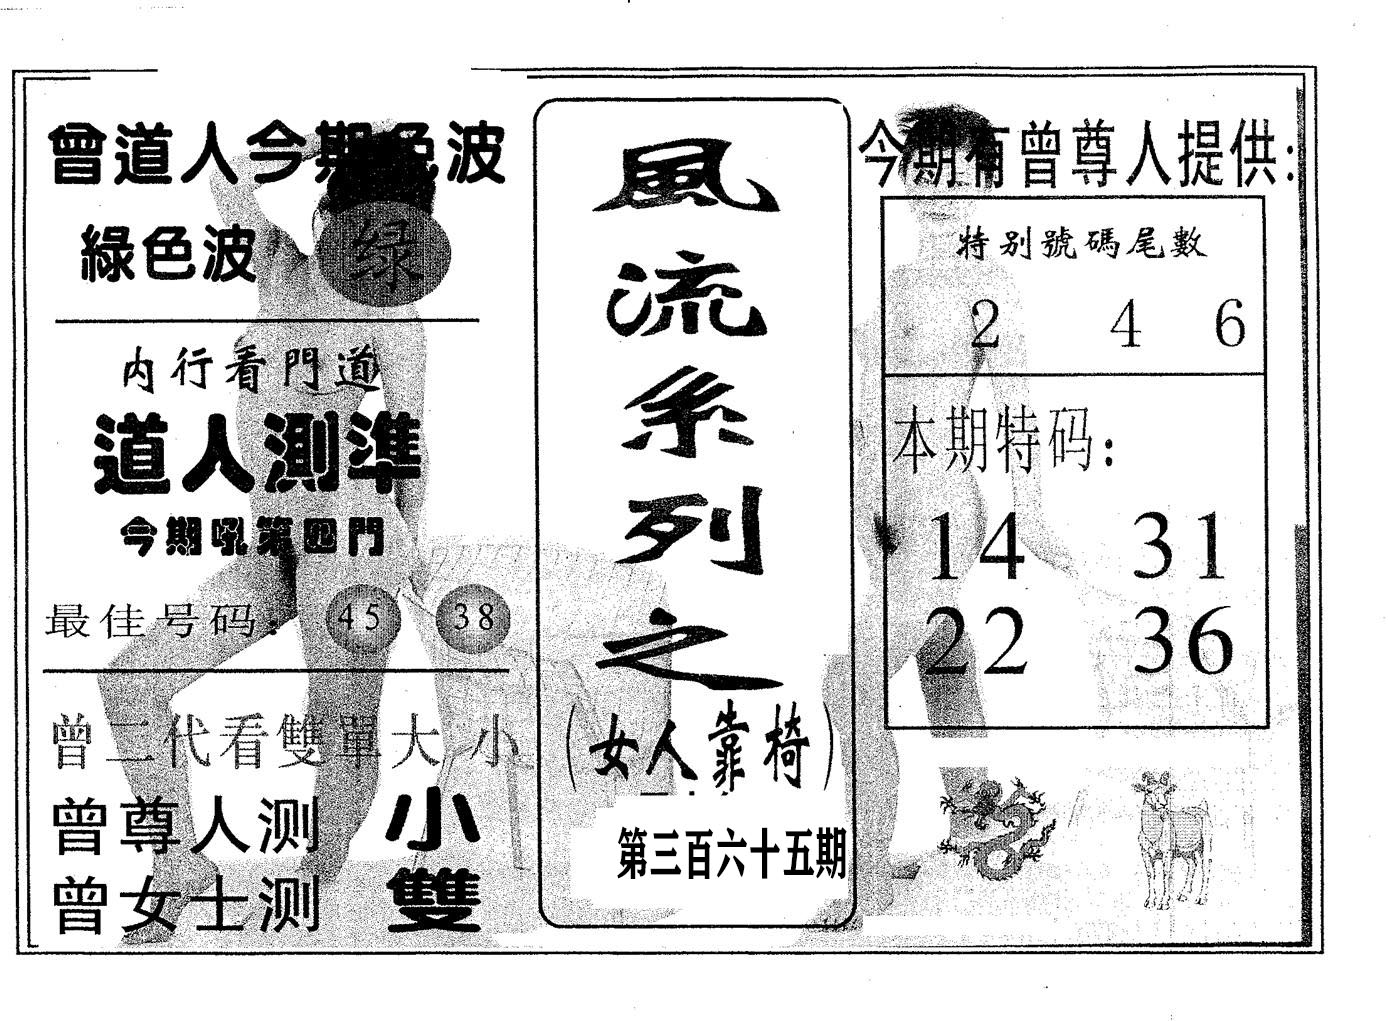 曾道人今期色波
綠色波 綠
内行看門道
道人測準
今期吼第四門
最佳号码: 45 38
曾二代看雙單大小
曾尊人测 小
曾女士测 雙
風流系列之
(女人靠椅)
第三百六十五期
今期有曾尊人提供:
特别號碼尾數
2 4 6
本期特码:
14 31
22 36